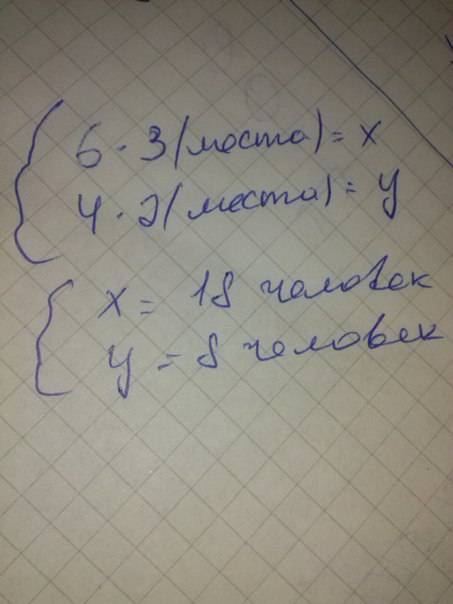 6 · 3 (места) = x
4 · 2 (места) = y
x = 18 человек
y = 8 человек